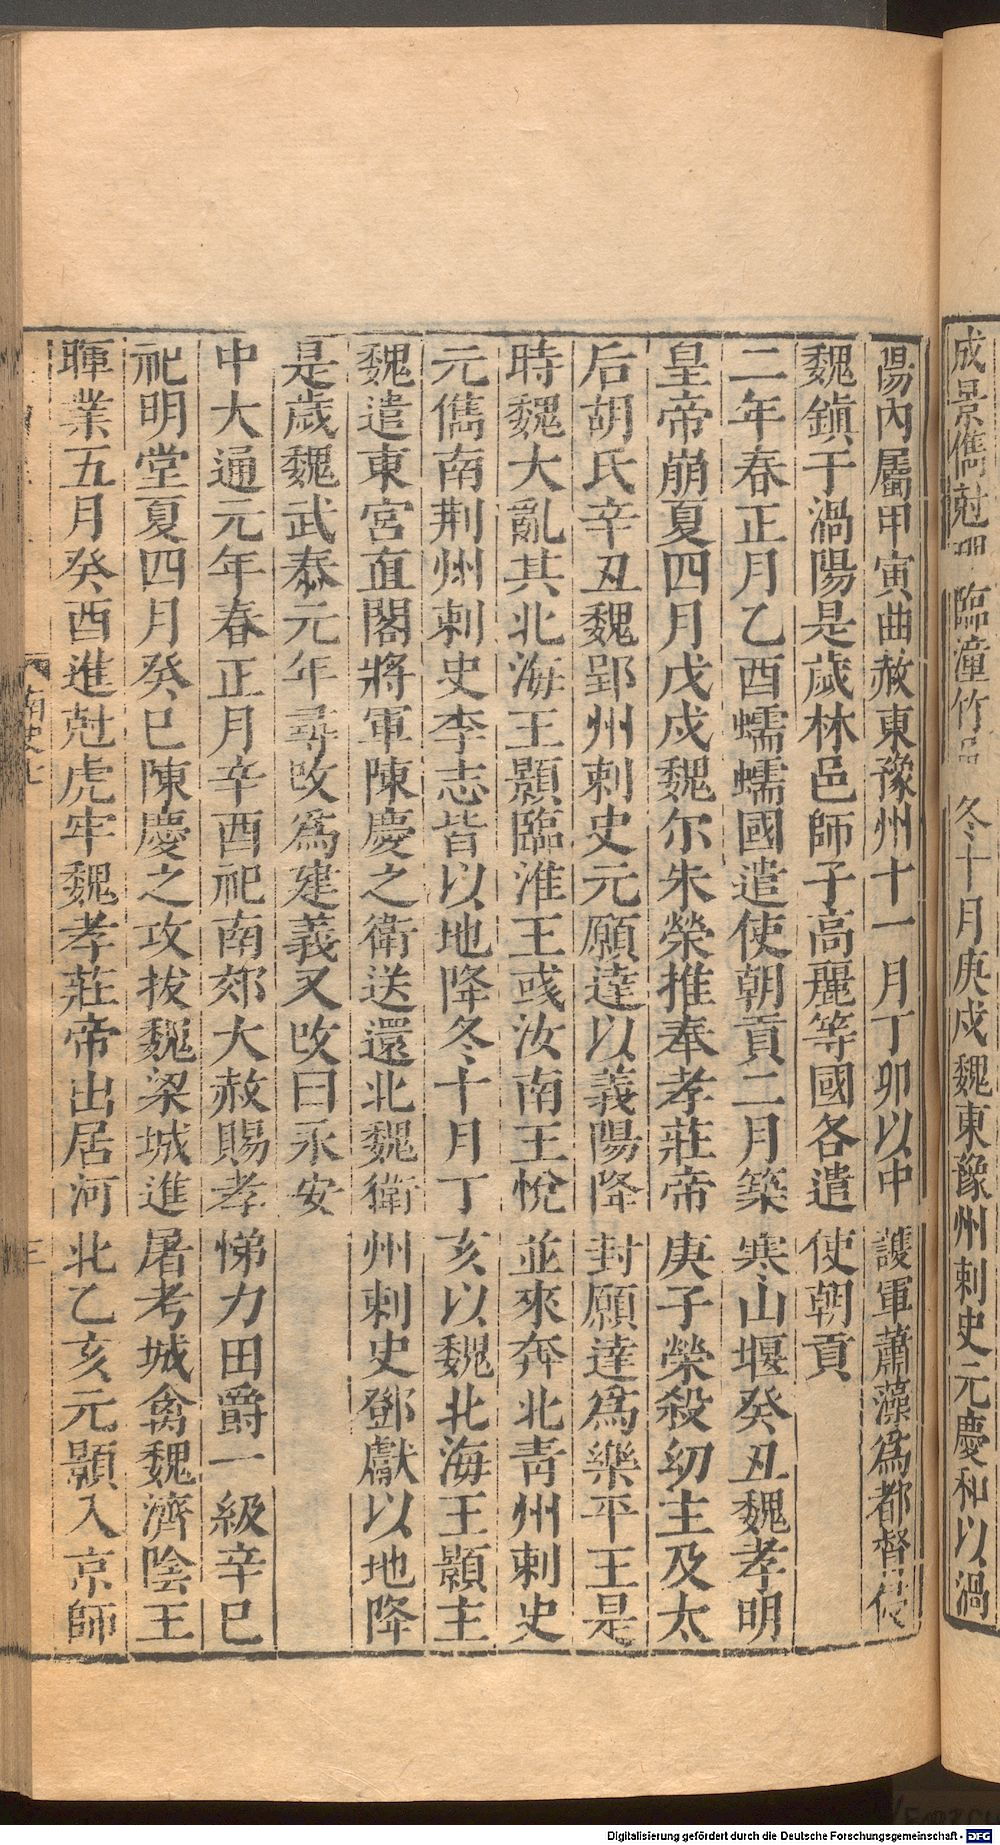 成景儁尅 臨潼竹 冬十月庚戌魏東豫州刺史元慶和以渦
陽內屬甲寅曲赦東豫州十一月丁卯以中護軍蕭藻爲都督侵
魏鎭于渦陽是歲林邑師子高麗等國各遣使朝貢
二年春正月乙酉蠕蠕國遣使朝貢二月築寒山堰癸丑魏孝明
皇帝崩夏四月戊戌魏尔朱榮推奉孝莊帝庚子榮殺幼主及太
后胡氏辛丑魏郢州刺史元願達以義陽降封願達爲樂平王是
時魏大亂其北海王顥臨淮王彧汝南王悅並來奔北青州刺史
元儁南荆州刺史李志皆以地降冬十月丁亥以魏北海王顥主
魏遣東宮直閣將軍陳慶之衛送還北魏衛州刺史鄧獻以地降
是歲魏武泰元年尋攺爲建義又攺曰永安
中大通元年春正月辛酉祀南郊大赦賜孝悌力田爵一級辛巳
祀明堂夏四月癸巳陳慶之攻拔魏梁城進屠考城禽魏濟陰王
暉業五月癸酉進尅虎牢魏孝莊帝出居河北乙亥元顥入京師
南史七
三
Digitalisierung gefördert durch die Deutsche Forschungsgemeinschaft - DFG